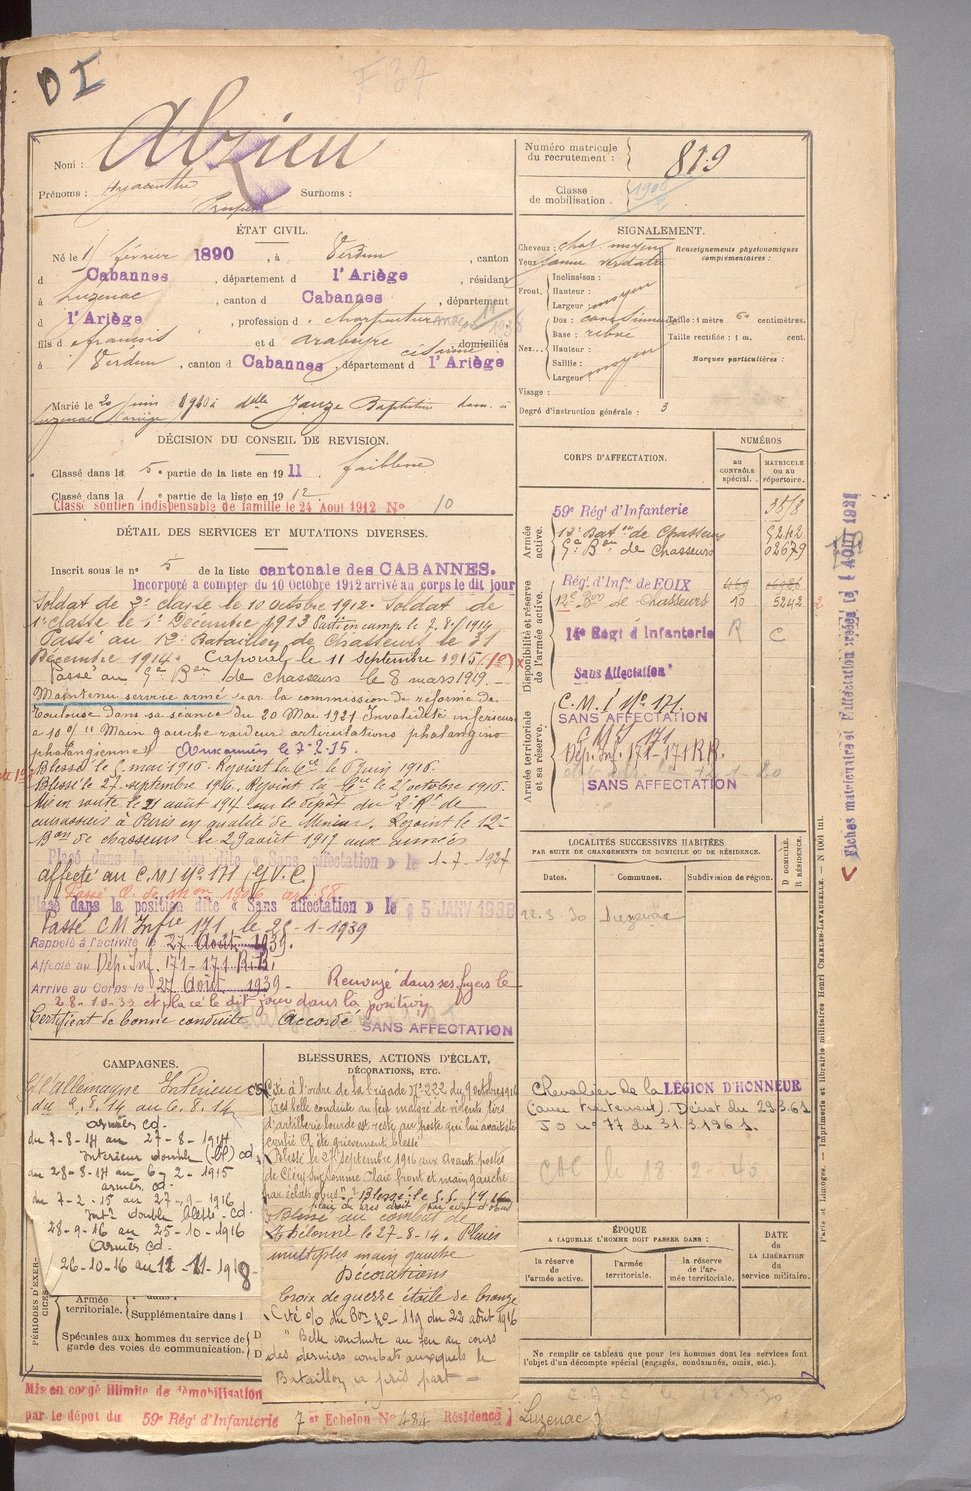 D I
F 37
Nom : Abzieu
Prénoms : Hyacinthe Surnoms :
Prosper
Numéro matricule du recrutement : 819
Classe de mobilisation :
ÉTAT CIVIL.
Né le 1 février 1890, à Verdun, canton
d Cabannes, département d l'Ariège, résidant
à Luzenac, canton d Cabannes, département
d l'Ariège, profession d charpentier
fils d françois et d Arabeyre césarine, domiciliés
à Verdun, canton d Cabannes, département d l'Ariège
Marié le 20 Juin 1920 à dlle Jauze Baptistine dom. à
Luzenac (Ariège)
SIGNALEMENT.
Cheveux : chat. moyen
Yeux jaune verdatre
Front, Inclinaison :
Hauteur :
Largeur : moyen
Nez... Dos :
Base :
Hauteur :
Saillie : moyen
Largeur :
Visage :
Degré d'instruction générale : 3
Renseignements physionomiques complémentaires :
Taille : 1 mètre 60 centimètres.
Taille rectifiée : 1 m. cent.
Marques particulières :
DÉCISION DU CONSEIL DE REVISION.
Classé dans la 5e partie de la liste en 1911. faiblesse
Classé dans la 1e partie de la liste en 1912.
Classé soutien indispensable de famille le 24 Aout 1912 No 10
DÉTAIL DES SERVICES ET MUTATIONS DIVERSES.
Inscrit sous le no 5 de la liste cantonale des CABANNES.
Incorporé a compter du 10 Octobre 1912 arrivé au corps le dit jour
Soldat de 2e classe le 10 octobre 1912. Soldat de
1e classe le 1e Décembre 1913 Parti en camp. le 7.8.1914
Passé au 12e Bataillon de Chasseurs le 31
Décembre 1914. Caporal le 11 septembre 1915
Passé au 9e Bon de chasseurs le 8 mars 1919.
Maintenu service armé par la commission de réforme de
Toulouse dans sa séance du 20 Mai 1921 Invalidité inférieure
à 10 % "Main gauche raideur articulations phalango
phalangienne" Aux armées le 7-2-15.
Blessé le 5 mai 1916. Rejoint la Cie le 6 Juin 1916.
Blessé le 27 septembre 1916. Rejoint la Cie le 25 octobre 1916.
Mis en route le 21 août 1917 sur le dépôt du 2e Rt de
cuirassiers à Paris en qualité de Mineur. Rejoint le 12e
Bon de chasseurs le 29 août 1917 aux armées
Placé dans la position dite « Sans affectation » le 1-7-1927
affecté au C.M.I No 171 (G.V.C.)
Placé dans la position dite « Sans affectation » le 5 JANV 1938
Passé CM Infrie 171, le 28-1-1939
Rappelé à l'activité le 27 Août 1939.
Affecté au Dép. Inf. 171-171 R.R.
Arrivé au Corps le 27 Août 1939 - Renvoyé dans ses foyers le
28-10-39 et placé le dit jour dans la position
Certificat de bonne conduite Accordé SANS AFFECTATION
CORPS D'AFFECTATION.
NUMÉROS
AU CONTRÔLE spécial.
MATRICULE ou au répertoire.
Armée active.
59e Régt d'Infanterie
12e Baton de Chasseurs 5242
9e Bon de Chasseurs 02679
Disponibilité et réserve de l'armée active.
Régt d'Infie de FOIX
12e Bon de Chasseurs 10 5242
14e Régt d'Infanterie R C
Sans Affectation
Armée territoriale et sa réserve.
C.M.I No 171.
SANS AFFECTATION
C M I 171
Dép. Inf. 171-171 RR.
SANS AFFECTATION
LOCALITÉS SUCCESSIVES HABITÉES
PAR SUITE DE CHANGEMENTS DE DOMICILE OU DE RÉSIDENCE.
Dates. Communes. Subdivision de région. D DOMICILE. R RÉSIDENCE.
22.3.30 Luzenac
Chevalier de la LÉGION D'HONNEUR
(avec traitement). Décret du 29.3.61
JO no 77 du 31.3.1961.
CAMPAGNES.
du 2.8.14 au 6.8.14
armées cd.
du 7-8-14 au 27-8-1914
Intérieur double cd.
du 28-8-14 au 6-2-1915
armées cd.
du 7-2-15 au 27-9-1916
Intr double blessé cd.
28-9-16 au 25-10-1916
Armées cd.
26-10-16 au 11-11-1918
PÉRIODES D'EXERCICES
Armée territoriale.
Supplémentaire dans l
Spéciales aux hommes du service de garde des voies de communication.
BLESSURES, ACTIONS D'ÉCLAT,
DÉCORATIONS, ETC.
Cité à l'ordre de la brigade No 222 du 9 octobre 1916
Très belle conduite au feu malgré de violents tirs
d'artillerie lourde est resté au poste qui lui avait été
confié a été grièvement blessé
Blessé le 27 septembre 1916 aux Avants postes
de Cléry Somme Plaie front et main gauche
par éclats d'obus Blessé le 5.5.1916
plaie du bras droit par éclat d'obus
Blessé au combat de
le 27-8-14. Plaies
multiples main gauche
Décorations
Croix de guerre étoile de bronze
Cité O/ du Bon No 119 du 22 août 1916
" Belle conduite au feu au cours
des derniers combats auxquels le
Bataillon a pris part
ÉPOQUE
A LAQUELLE L'HOMME DOIT PASSER DANS :
la réserve de l'armée active.
l'armée territoriale.
la réserve de l'armée territoriale.
DATE de LA LIBÉRATION du service militaire.
Ne remplir ce tableau que pour les hommes dont les services font l'objet d'un décompte spécial (engagés, condamnés, omis, etc.).
Mis en congé illimité de démobilisation
par le dépôt du 59e Régt d'Infanterie 7er Echelon No 484 Résidence Luzenac
Paris et Limoges. — Imprimerie et librairie militaires Henri CHARLES-LAVAUZELLE. — N 1001 int.